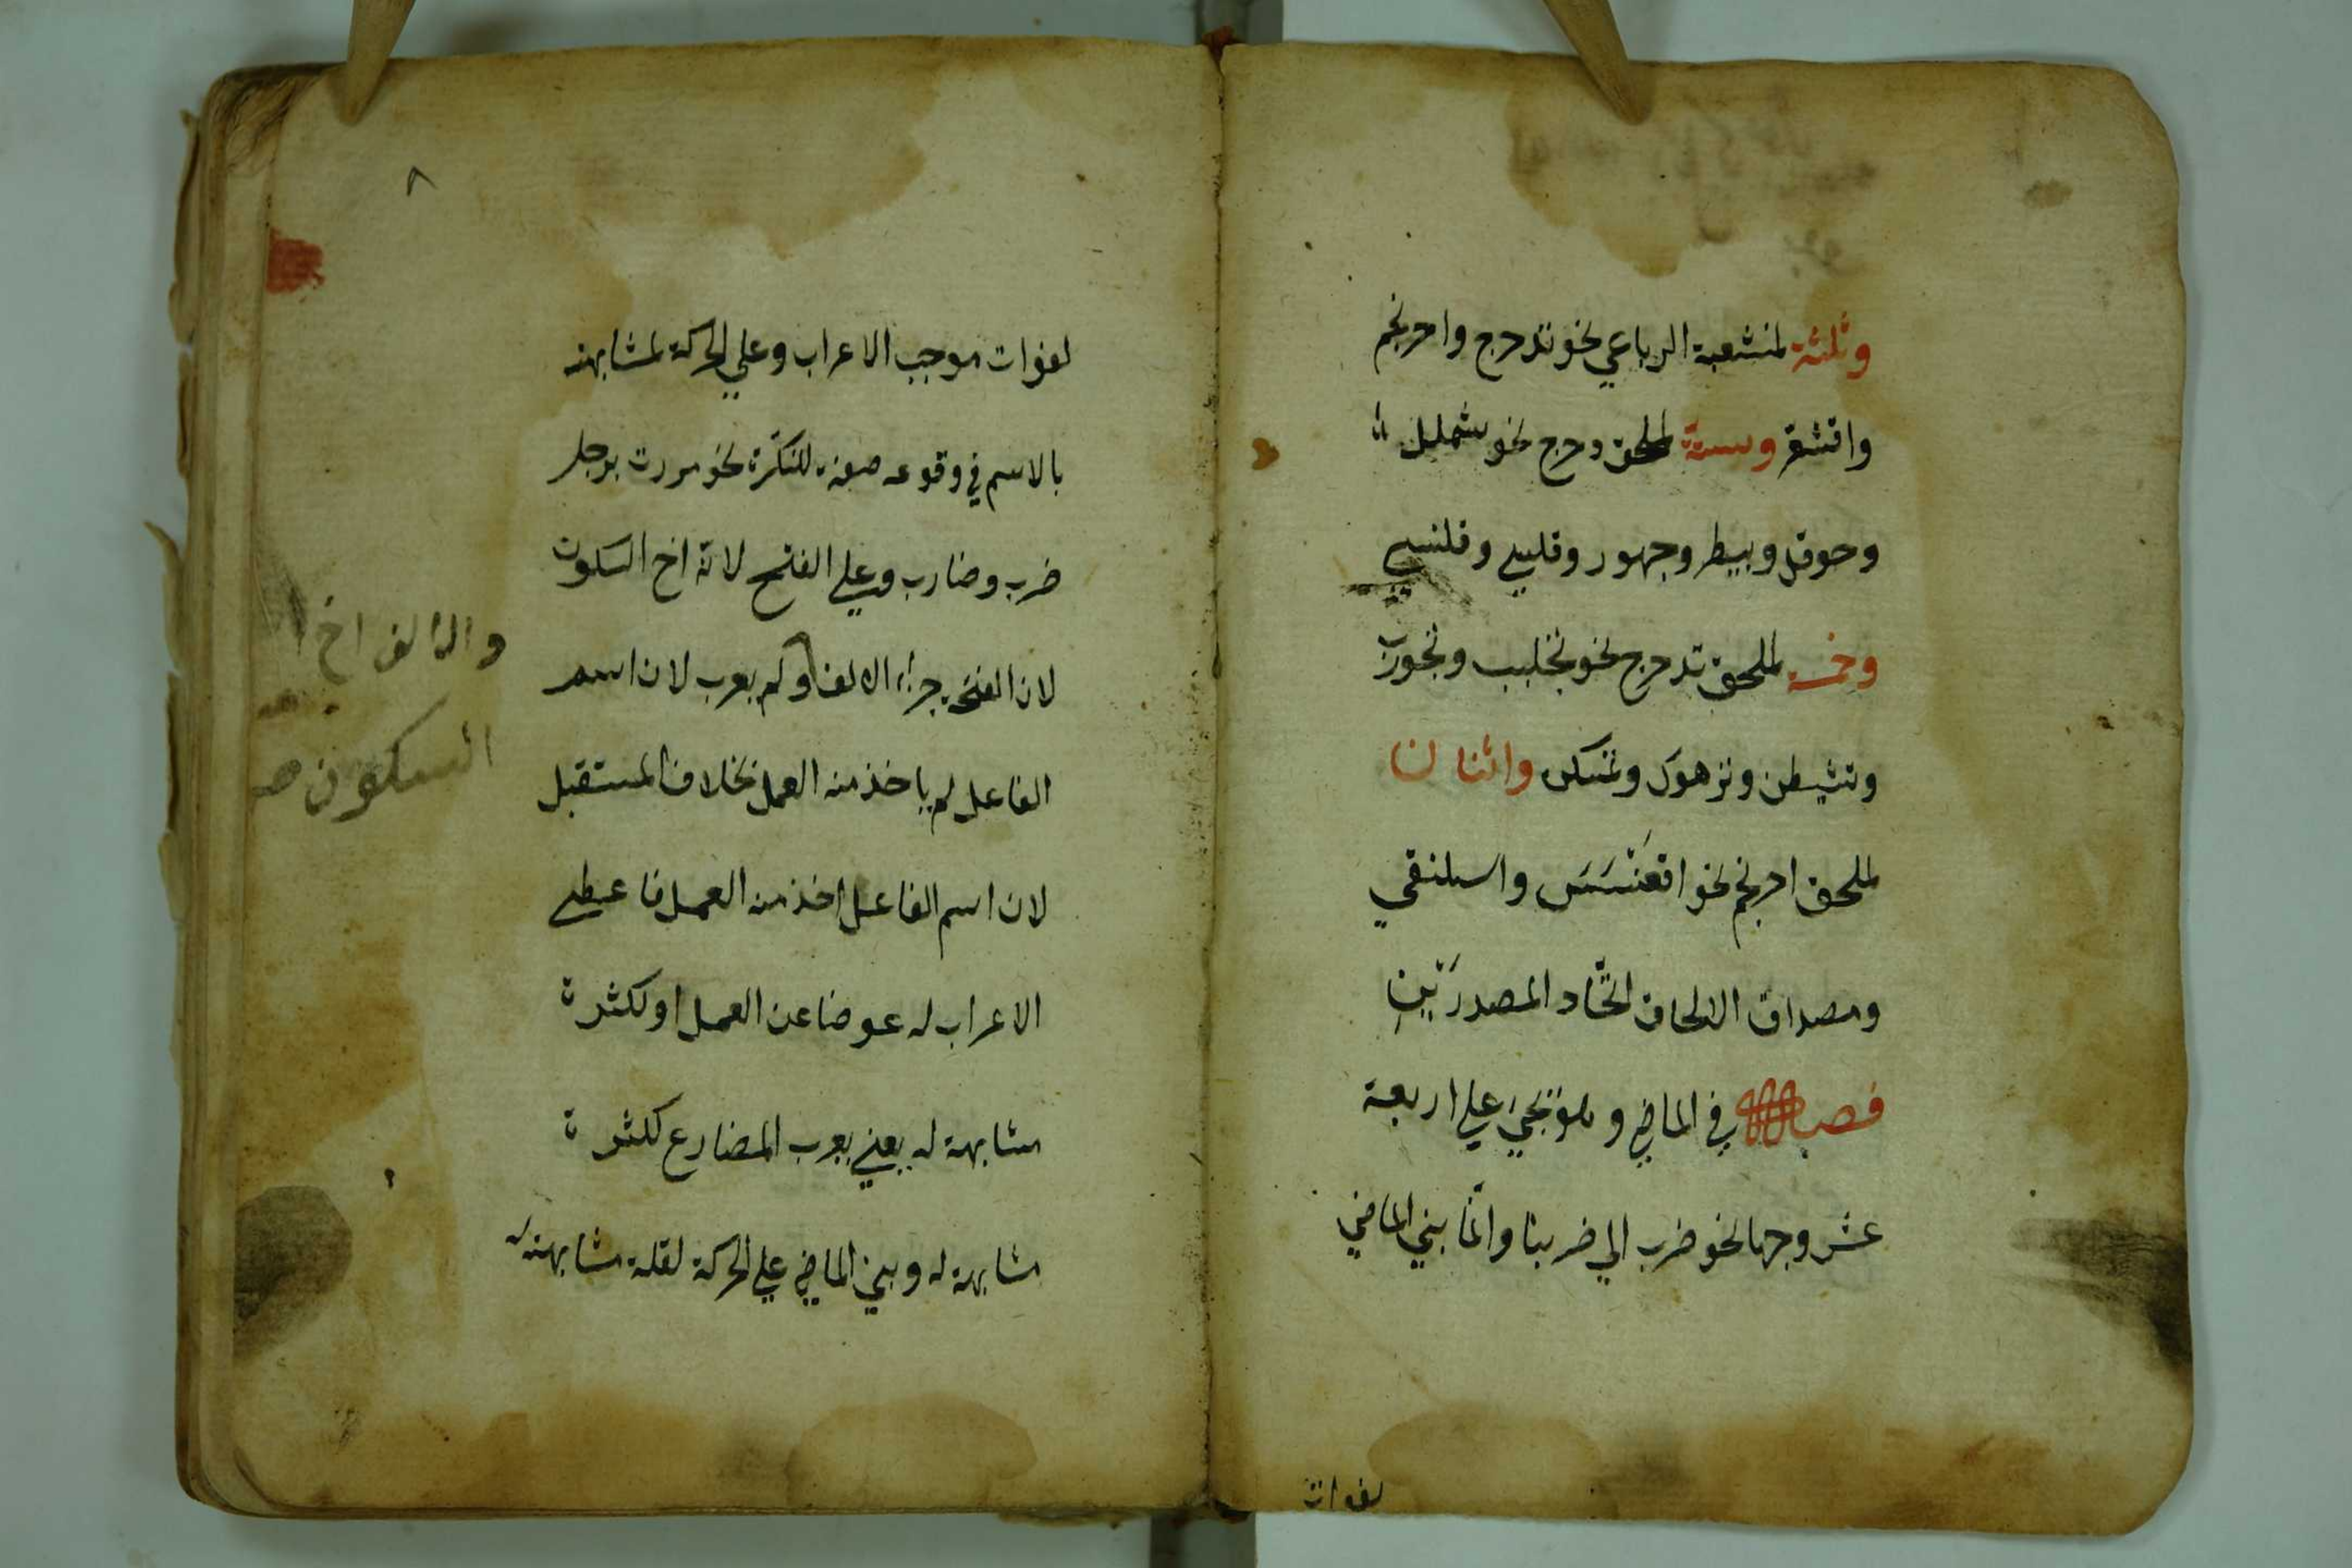 وثلثة لمنشعبة الرباعي نحو تدحرج واحرنجم
واقشعر وستة لملحق دحرج نحو شملل
وحوقل وبيطر وجهور وقلسي وقلنسي
وخمسة لملحق تدحرج نحو تجلبب وتجورب
وتشيطن وترهوك وتمسكن واثنان
لملحق احرنجم نحو اقعنسس واسلنقي
ومصداق الالحاق اتّحاد المصدرَيْنِ
فصل في الماضي وهو يجيئ علي اربعة
عشر وجها نحو ضرب الي ضربنا وانّما بني الماضي
لفوات
٨
لفوات موجب الاعراب وعلي الحركة لمشابهته
بالاسم في وقوعه صفة للنكرة نحو مررت برجل
ضرب وضارب وعلي الفتح لانّه اخ السكون
لان الفتحة جزء الالف ولم يعرب لان اسم
الفاعل لم ياخذ منه العمل بخلاف المستقبل
لان اسم الفاعل اخذ منه العمل فاعطي
الاعراب له عوضا عن العمل او لكثرة
مشابهة له يعني يعرب المضارع لكثرة
مشابهة له وبني الماضي علي الحركة لقلة مشابهته له
والالف اخ
السكون صح